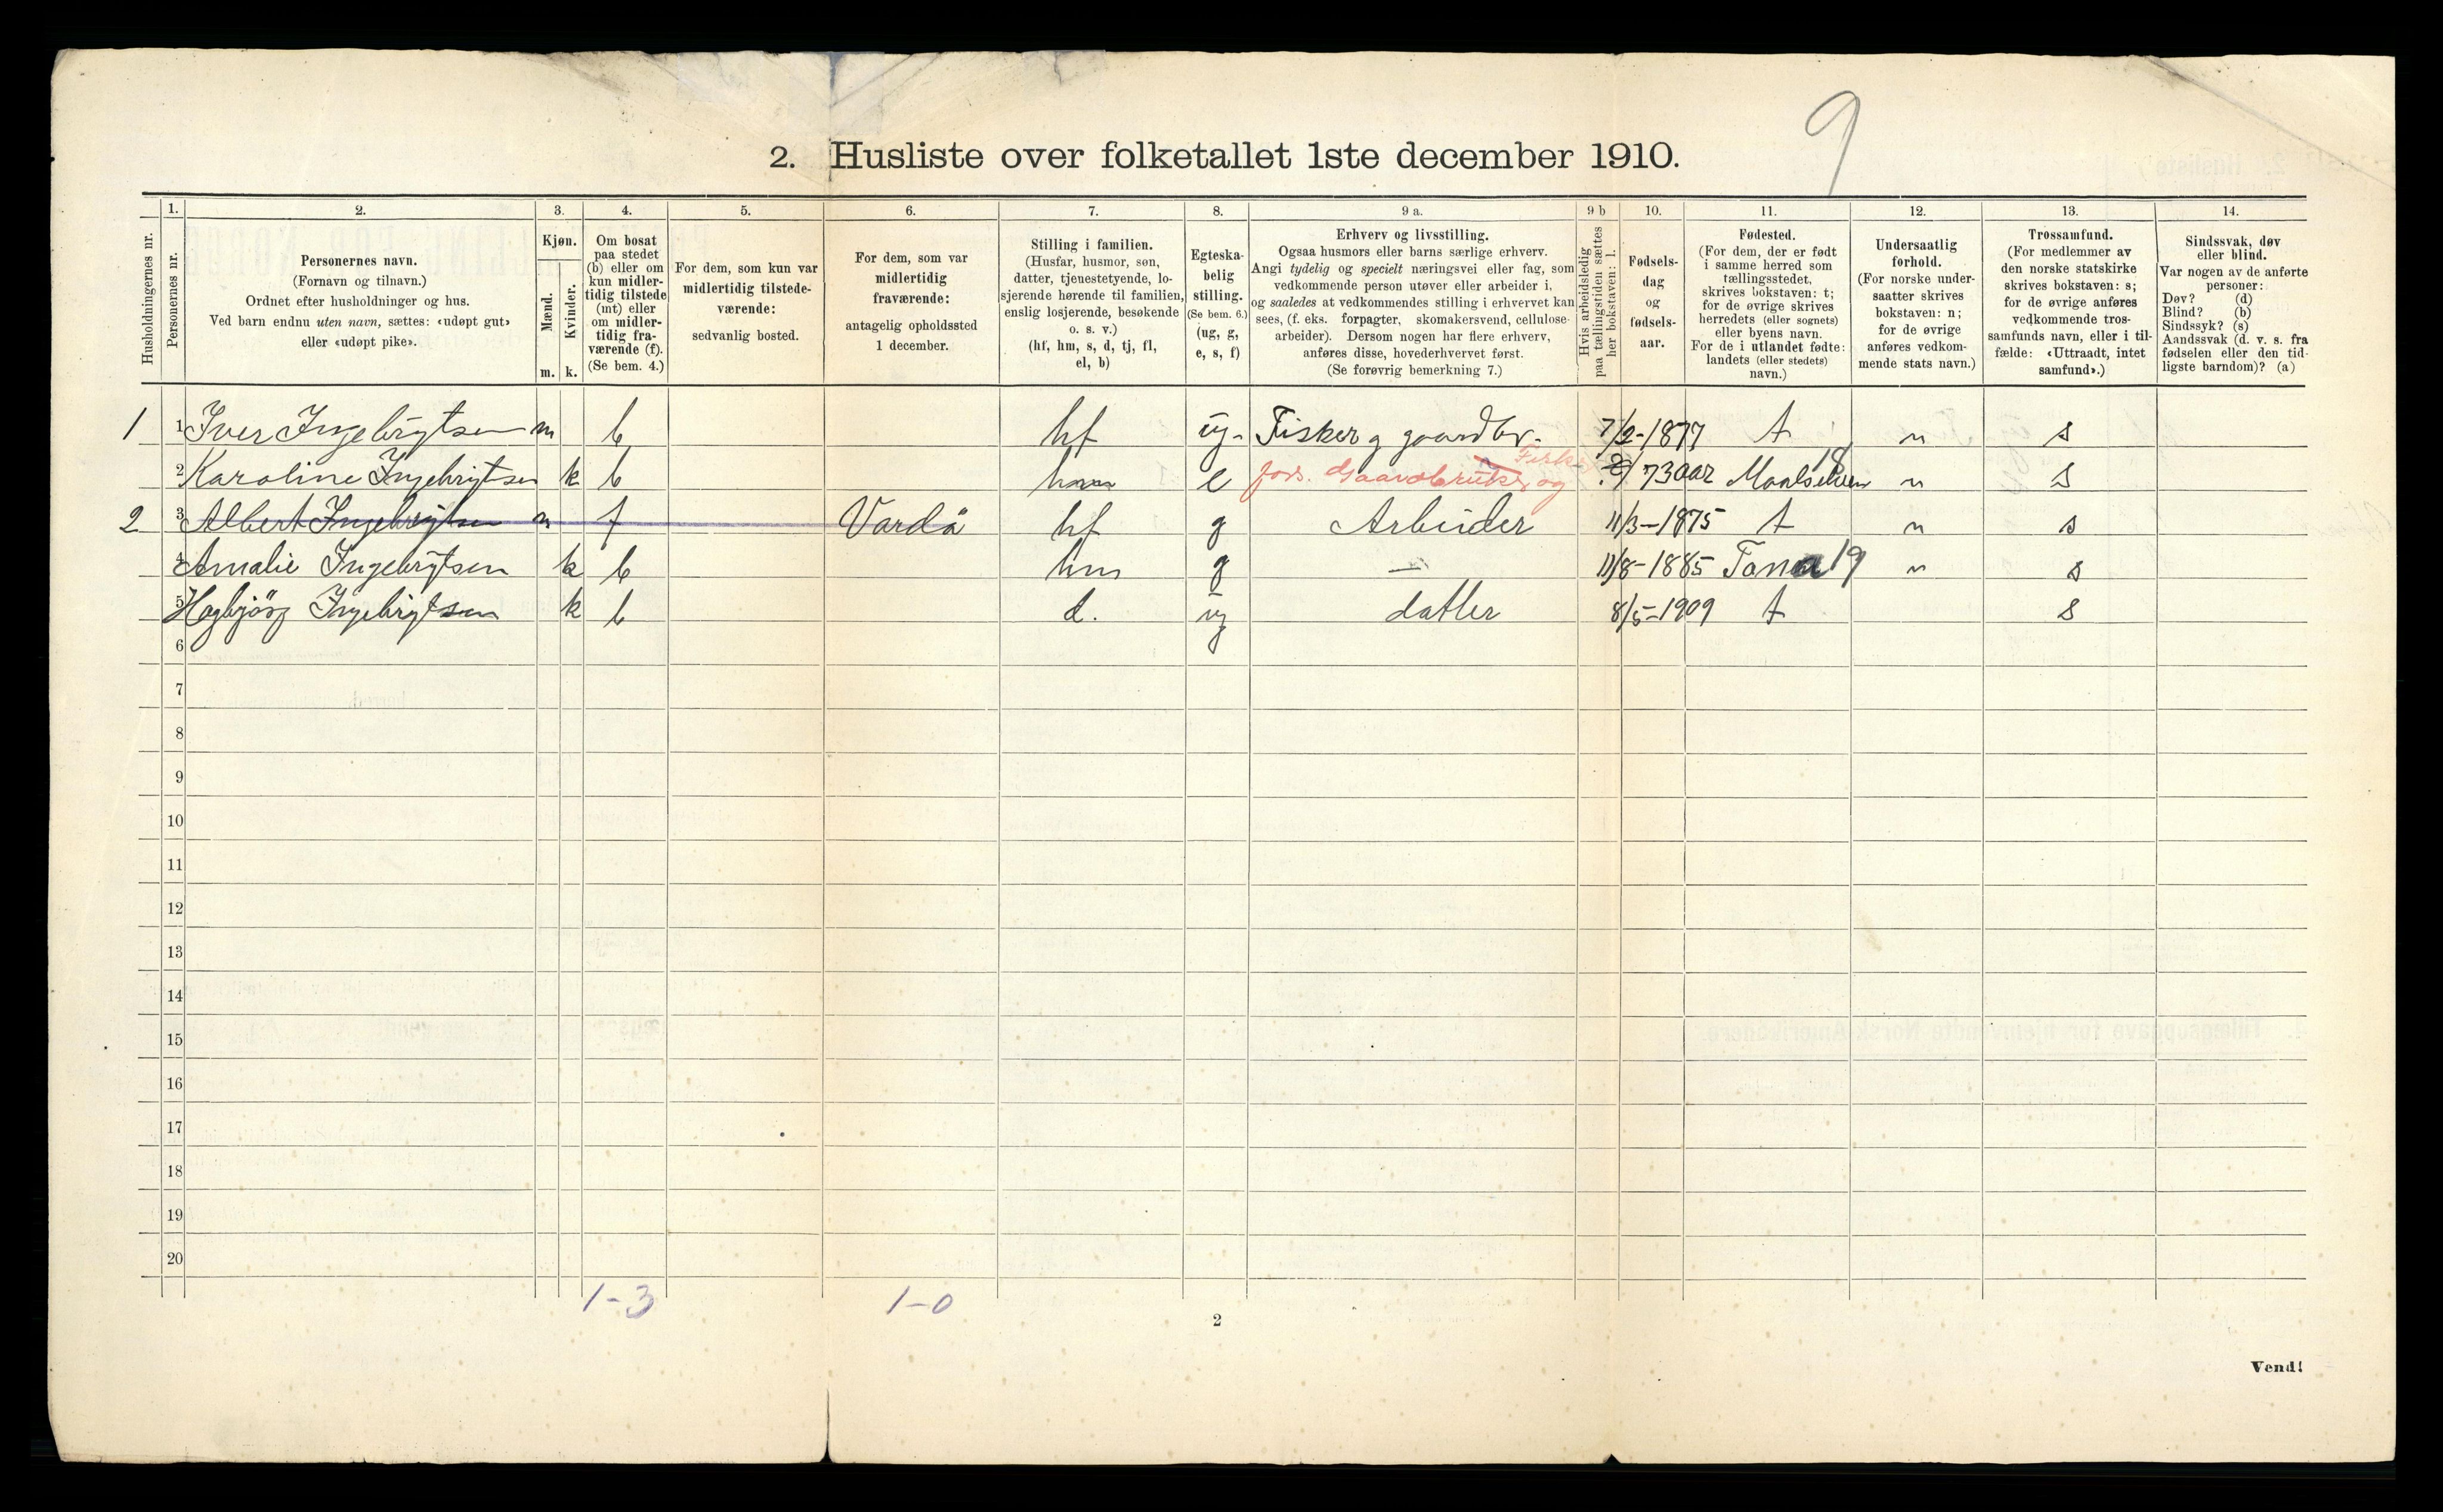 9
2. Husliste over folketallet 1ste december 1910.
Husholdningernes nr.
1.
Personernes nr.
2.
Personernes navn.
(Fornavn og tilnavn.)
Ordnet efter husholdninger og hus.
Ved barn endnu uten navn, sættes: «udøpt gut»
eller «udøpt pike».
3.
Kjøn.
Mænd.
Kvinder.
m. k.
4.
Om bosat
paa stedet
(b) eller om
kun midler-
tidig tilstede
(mt) eller
om midler-
tidig fra-
værende (f).
(Se bem. 4.)
5.
For dem, som kun var
midlertidig tilstede-
værende:
sedvanlig bosted.
6.
For dem, som var
midlertidig
fraværende:
antagelig opholdssted
1 december.
7.
Stilling i familien.
(Husfar, husmor, søn,
datter, tjenestetyende, lo-
sjerende hørende til familien,
enslig losjerende, besøkende
o. s. v.)
(hf, hm, s, d, tj, fl,
el, b)
8.
Egteska-
belig
stilling.
(Se bem. 6.)
(ug, g,
e, s, f)
9 a.
Erhverv og livsstilling.
Ogsaa husmors eller barns særlige erhverv.
Angi tydelig og specielt næringsvei eller fag, som
vedkommende person utøver eller arbeider i,
og saaledes at vedkommendes stilling i erhvervet kan
sees, (f. eks. forpagter, skomakersvend, cellulose-
arbeider). Dersom nogen har flere erhverv,
anføres disse, hovederhvervet først.
(Se forøvrig bemerkning 7.)
9 b
Hvis arbeidsledig
paa tællingstiden sættes
her bokstaven: l.
10.
Fødsels-
dag
og
fødsels-
aar.
11.
Fødested.
(For dem, der er født
i samme herred som
tællingsstedet,
skrives bokstaven: t;
for de øvrige skrives
herredets (eller sognets)
eller byens navn.
For de i utlandet fødte:
landets (eller stedets)
navn.)
12.
Undersaatlig
forhold.
(For norske under-
saatter skrives
bokstaven: n;
for de øvrige
anføres vedkom-
mende stats navn.)
13.
Trossamfund.
(For medlemmer av
den norske statskirke
skrives bokstaven: s;
for de øvrige anføres
vedkommende tros-
samfunds navn, eller i til-
fælde: «Uttraadt, intet
samfund».)
14.
Sindssvak, døv
eller blind.
Var nogen av de anførte
personer:
Døv? (d)
Blind? (b)
Sindssyk? (s)
Aandssvak (d. v. s. fra
fødselen eller den tid-
ligste barndom)? (a)
1 1 Iver Ingebrigtsen m b hf ug. Fisker g gaardbr. 7/2-1877 t n s
2 Karoline Ingebrigtsen k b hm e fors. Gaardbruker og Fisker 73 aar Maalselven 18 n s
2 3 Albert Ingebrigtsen m f Vardö hf g Arbeider 11/3-1875 t n s
4 Amalie Ingebrigtsen k b hm g — 11/8-1885 Tana 19 n s
5 Hagbjörg Ingebrigtsen k b d. ug datter 8/5-1909 t s
6
7
8
9
10
11
12
13
14
15
16
17
18
19
20
1-3 1-0
2
Vend!